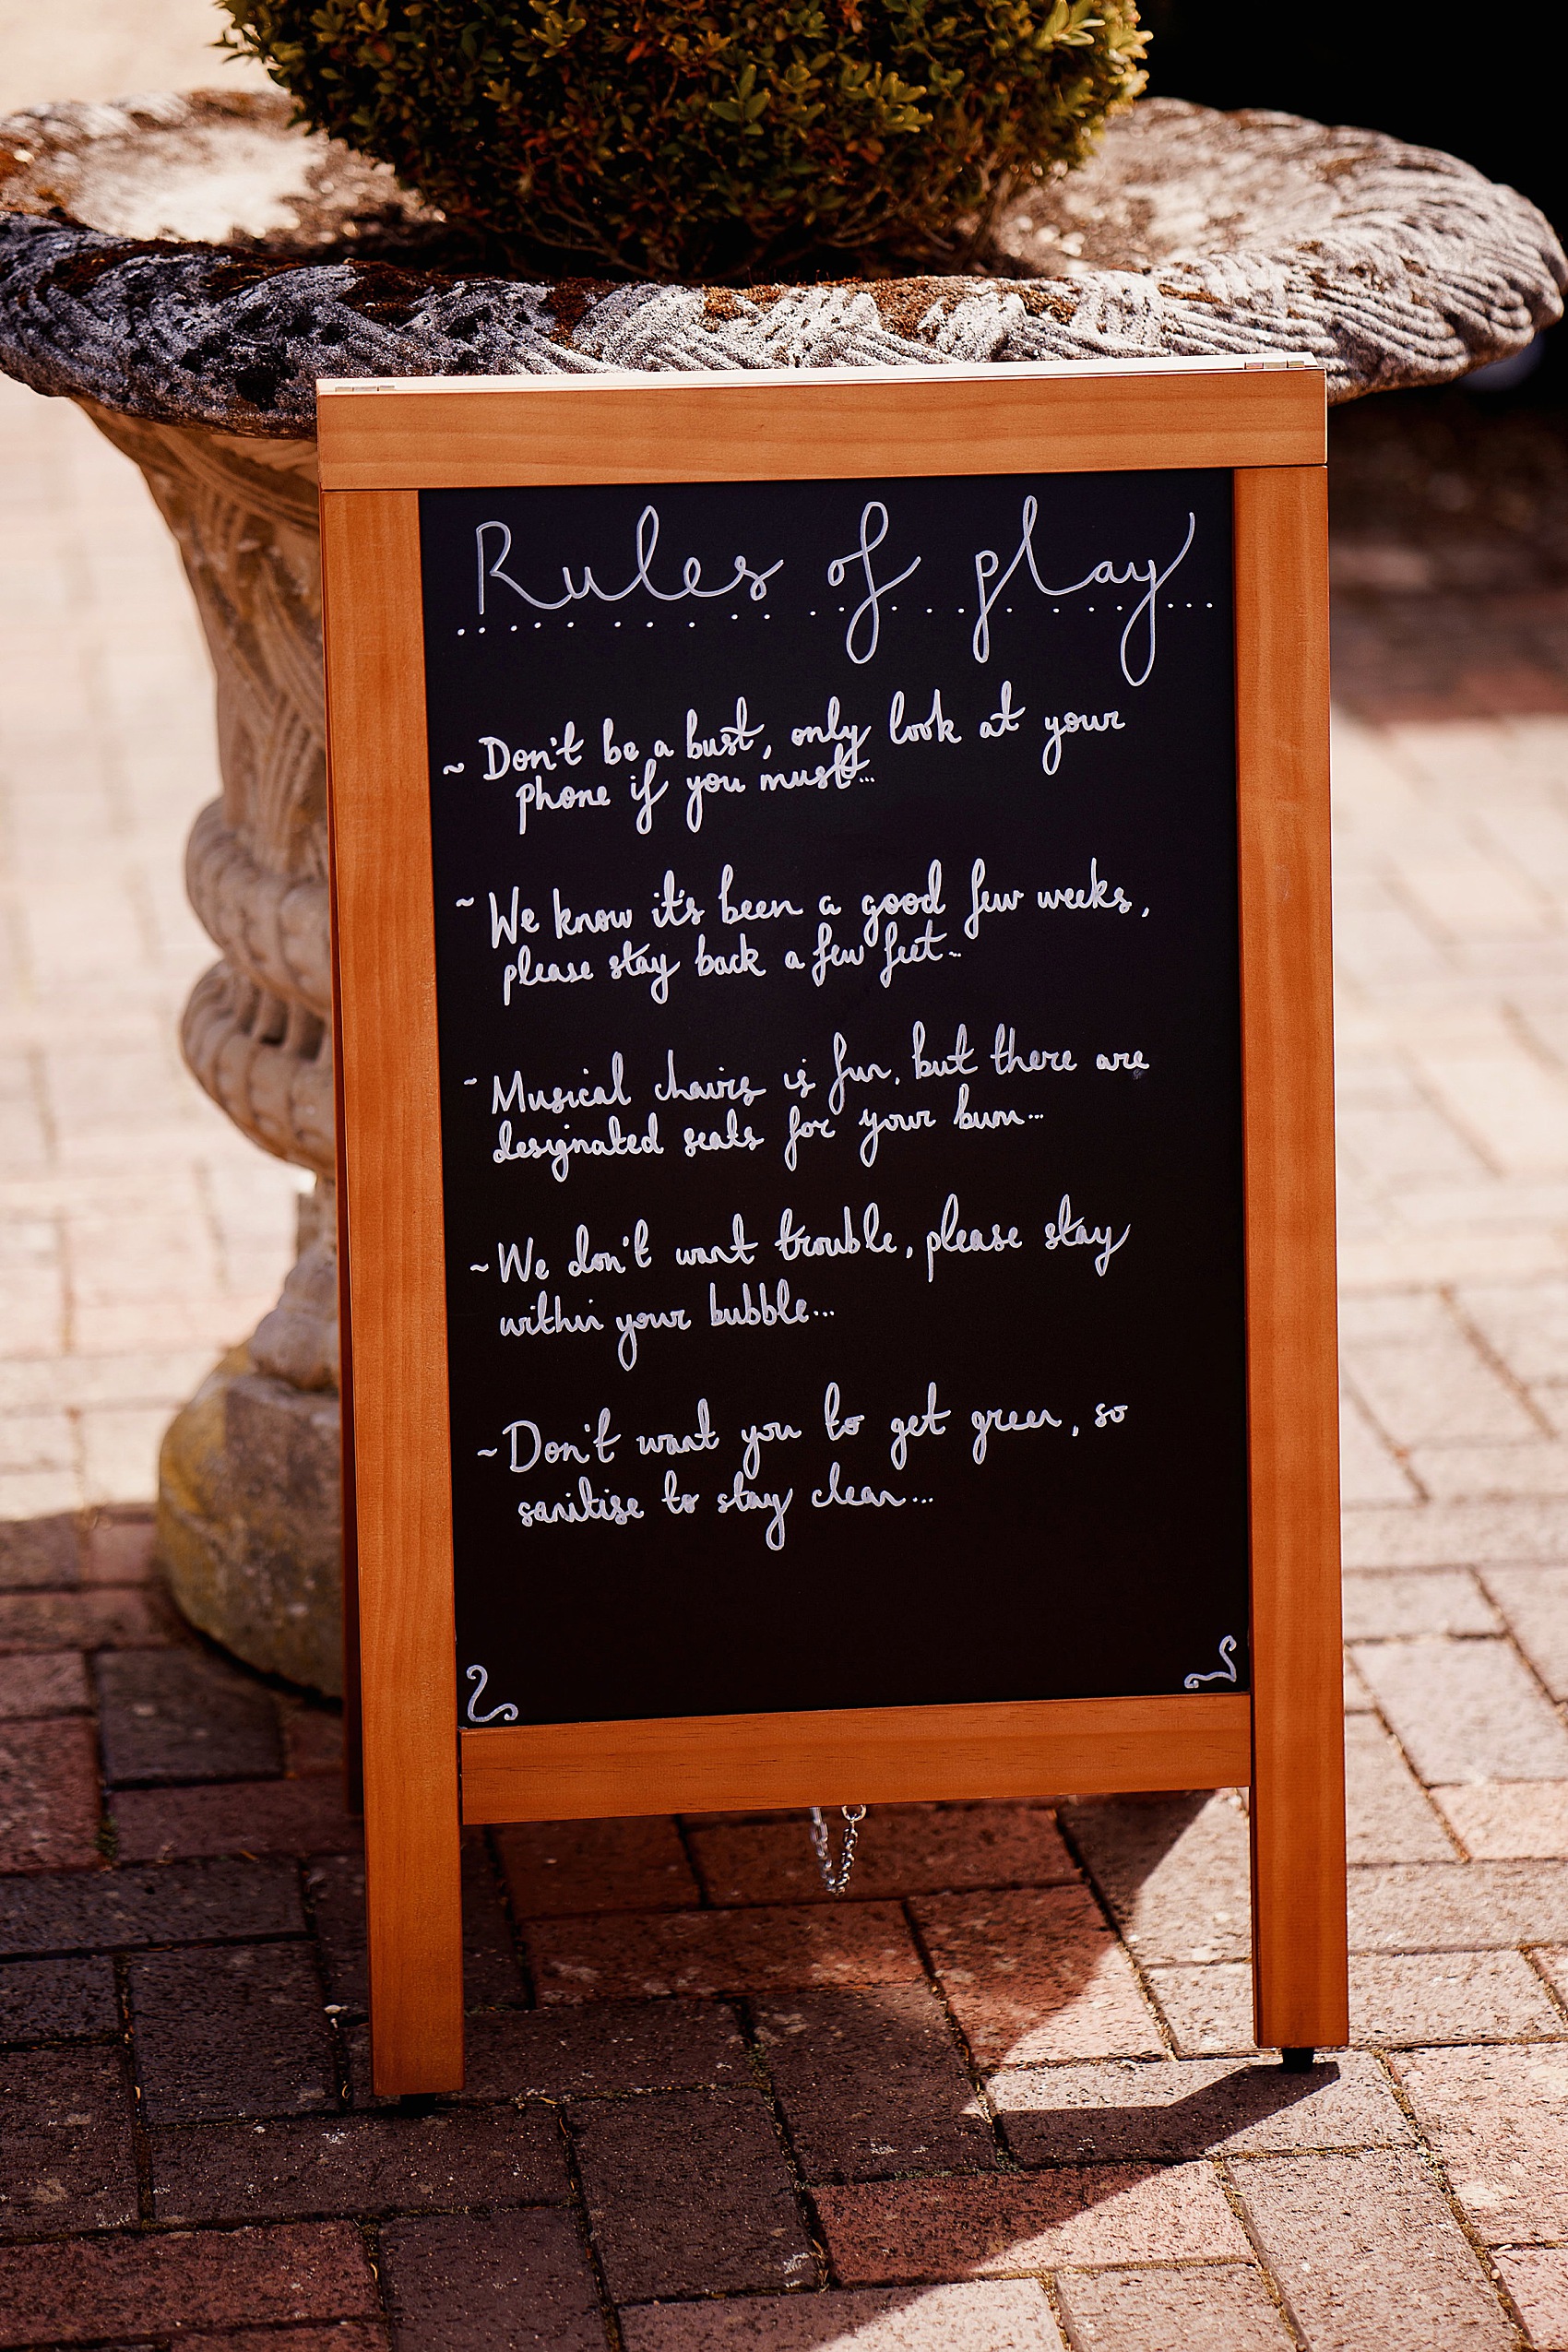 Rules of play
~ Don't be a bust, only look at your
phone if you must...
~ We know it's been a good few weeks,
please stay back a few feet...
~ Musical chairs is fun, but there are
designated seats for your bum...
~ We don't want trouble, please stay
within your bubble...
~ Don't want you to get green, so
sanitise to stay clean...